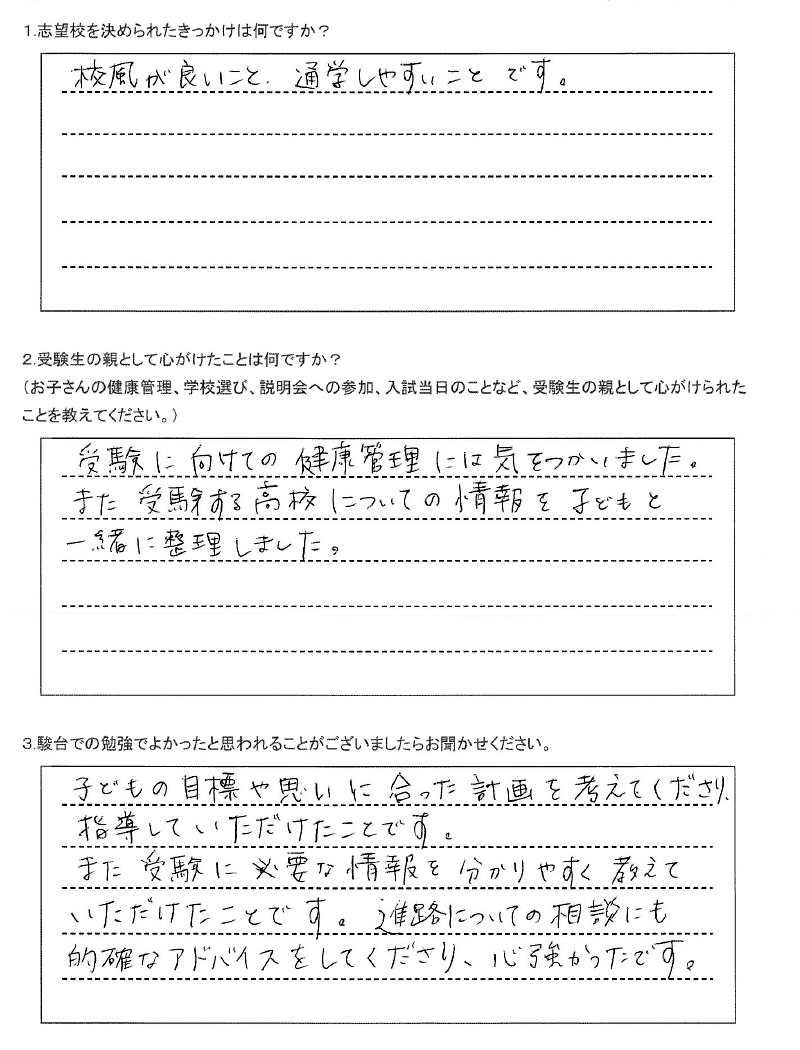 1.志望校を決められたきっかけは何ですか？
校風が良いこと、通学しやすいことです。
2.受験生の親として心がけたことは何ですか？
（お子さんの健康管理、学校選び、説明会への参加、入試当日のことなど、受験生の親として心がけられた
ことを教えてください。）
受験に向けての健康管理には気をつかいました。
また受験する高校についての情報を子どもと
一緒に整理しました。
3.駿台での勉強でよかったと思われることがございましたらお聞かせください。
子どもの目標や思いに合った計画を考えてくださり、
指導していただけたことです。
また受験に必要な情報を分かりやすく教えて
いただけたことです。進路についての相談にも
的確なアドバイスをしてくださり、心強かったです。